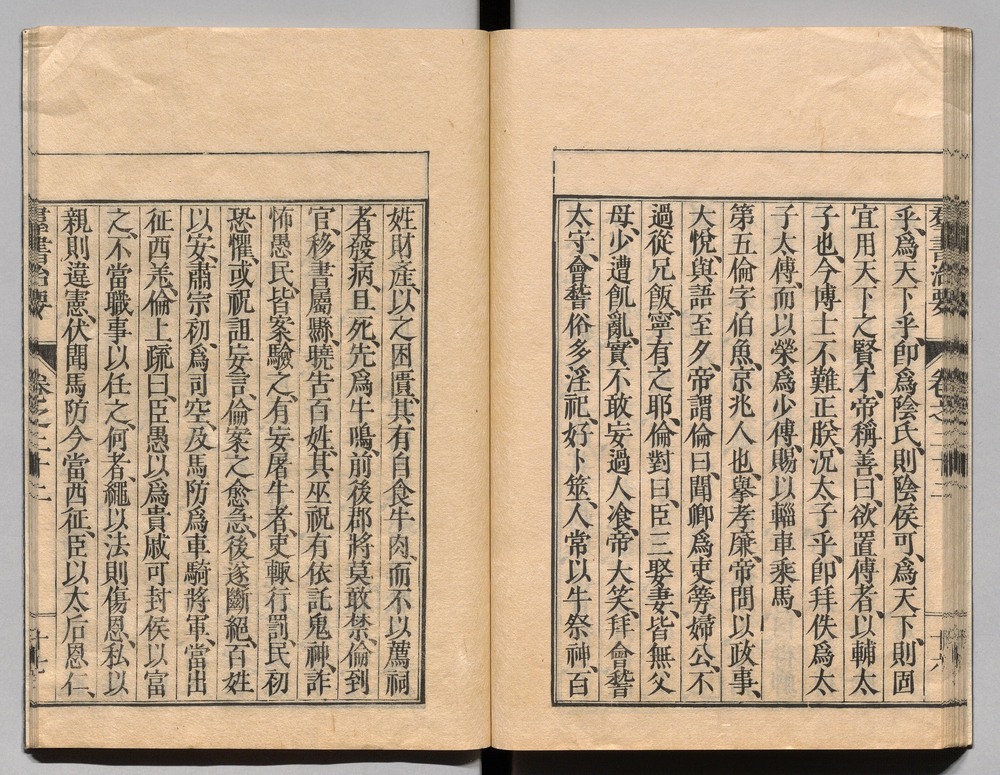 乎、爲天下乎、卽爲陰氏、則陰侯可、爲天下、則固
宜用天下之賢才、帝稱善曰、欲置傅者、以輔太
子也、今博士不難正朕、况太子乎、卽拜佚爲太
子太傅、而以榮爲少傅、賜以輜車乘馬、
第五倫字伯魚、京兆人也、擧孝廉、帝問以政事、
大悅、與語至夕、帝謂倫曰、聞卿爲吏篣婦公、不
過從兄飯、寧有之耶、倫對曰、臣三娶妻、皆無父
母、少遭飢亂、實不敢妄過人飡、帝大笑、拜會稽
太守、會稽俗多淫祀、好卜筮、人常以牛祭神、百
群書治要 卷之二十二 十六
姓財產、以之困匱、其有自食牛肉、而不以薦祠
者、發病、且死、先爲牛鳴、前後郡將莫敢禁、倫到
官、移書屬縣、曉告百姓、其巫祝有依託鬼神、詐
怖愚民、皆案驗之、有妄屠牛者、吏輒行罰、民初
恐懼、或祝詛妄言、倫案之愈急、後遂斷絕、百姓
以安、肅宗初、爲司空、及馬防爲車騎將軍、當出
征西羌、倫上疏曰、臣愚以爲貴戚可封侯以富
之、不當職事以任之、何者、繩以法則傷恩、私以
親則違憲、伏聞馬防今當西征、臣以太后恩仁、
羣書治要 卷之二十二 十七